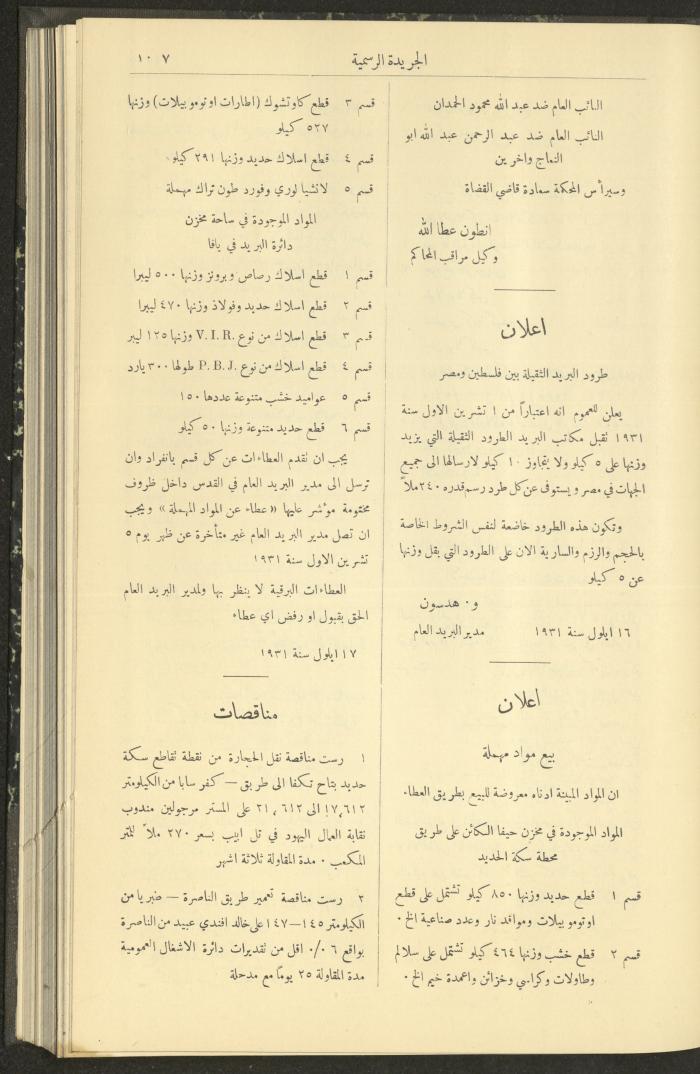 الجريدة الرسمية
١٠٧
النائب العام ضد عبد الله محمود الحمدان
النائب العام ضد عبد الرحمن عبد الله ابو
النماج واخرين
وسيرأس المحكمة سعادة قاضي القضاة
انطون عطا الله
وكيل مراقب المحاكم
اعلان
طرود البريد الثقيلة بين فلسطين ومصر
يعلن للعموم انه اعتباراً من ١ تشرين الاول سنة
١٩٣١ تقبل مكاتب البريد الطرود الثقيلة التي يزيد
وزنها على ٥ كيلو ولا يتجاوز ١٠ كيلو لارسالها الى جميع
الجهات في مصر ويستوفى عن كل طرد رسم قدره ٢٤٠ ملاً
وتكون هذه الطرود خاضعة لنفس الشروط الخاصة
بالحجم والرزم والسارية الان على الطرود التي يقل وزنها
عن ٥ كيلو
و٠ هدسون
١٦ ايلول سنة ١٩٣١ مدير البريد العام
اعلان
بيع مواد مهملة
ان المواد المبينة ادناه معروضة للبيع بطريق العطاء٠
المواد الموجودة في مخزن حيفا الكائن على طريق
محطة سكة الحديد
قسم ١ قطع حديد وزنها ٨٥٠ كيلو تشتمل على قطع
اوتوموبيلات ومواقد نار وعدد صناعية الخ٠
قسم ٢ قطع خشب وزنها ٤٦٤ كيلو تشتمل على سلالم
وطاولات وكراسي وخزائن واعمدة خيم الخ٠
قسم ٣ قطع كاوتشوك (اطارات اوتوموبيلات) وزنها
٥٢٧ كيلو
قسم ٤ قطع اسلاك حديد وزنها ٢٩١ كيلو٠
قسم ٥ لانشيا لوري وفورد طون تراك مهملة
المواد الموجودة في ساحة مخزن
دائرة البريد في يافا
قسم ١ قطع اسلاك رصاص وبرونز وزنها ٥٠٠ ليبرا
قسم ٢ قطع اسلاك حديد وفولاذ وزنها ٤٧٠ ليبرا
قسم ٣ قطع اسلاك من نوع V.I.R. وزنها ١٢٥ ليبر
قسم ٤ قطع اسلاك من نوع P.B.J. طولها ٣٠٠ يارد
قسم ٥ عواميد خشب متنوعة عددها ١٥٠
قسم ٦ قطع حديد متنوعة وزنها ٥٠ كيلو
يجب ان تقدم العطاءات عن كل قسم بانفراد وان
ترسل الى مدير البريد العام في القدس داخل ظروف
مختومة مؤشر عليها «عطاء عن المواد المهملة» ويجب
ان تصل مدير البريد العام غير متأخرة عن ظهر يوم ٥
تشرين الاول سنة ١٩٣١
العطاءات البرقية لا ينظر بها ولمدير البريد العام
الحق بقبول او رفض اي عطاء٠
١٧ ايلول سنة ١٩٣١
مناقصات
١ رست مناقصة نقل الحجارة من نقطة تقاطع سكة
حديد بتاح تكفا الى طريق — كفر سابا من الكيلومتر
١٧،٦١٢ الى ٢١،٦١٢ على المستر مرجولين مندوب
نقابة العمال اليهود في تل ابيب بسعر ٢٧٠ ملاً للمتر
المكعب٠ مدة المقاولة ثلاثة اشهر
٢ رست مناقصة تعمير طريق الناصرة — طبريا من
الكيلومتر ١٤٥—١٤٧ على خالد افندي عبيد من الناصرة
بواقع ٦ ٠/٠ اقل من تقديرات دائرة الاشغال العمومية
مدة المقاولة ٢٥ يوماً مع مدحلة